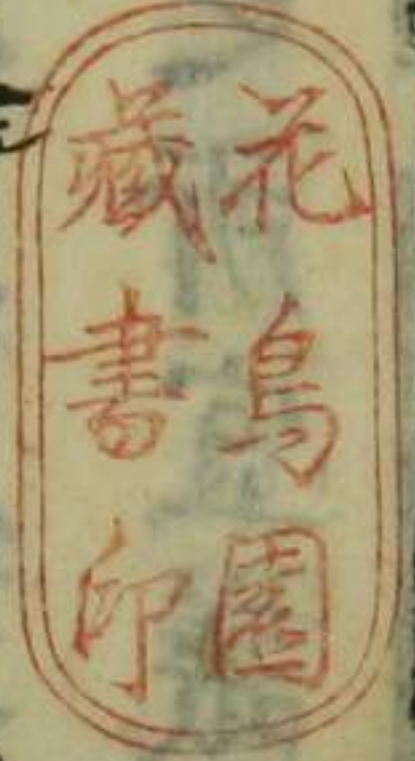 花鳥園
藏書印